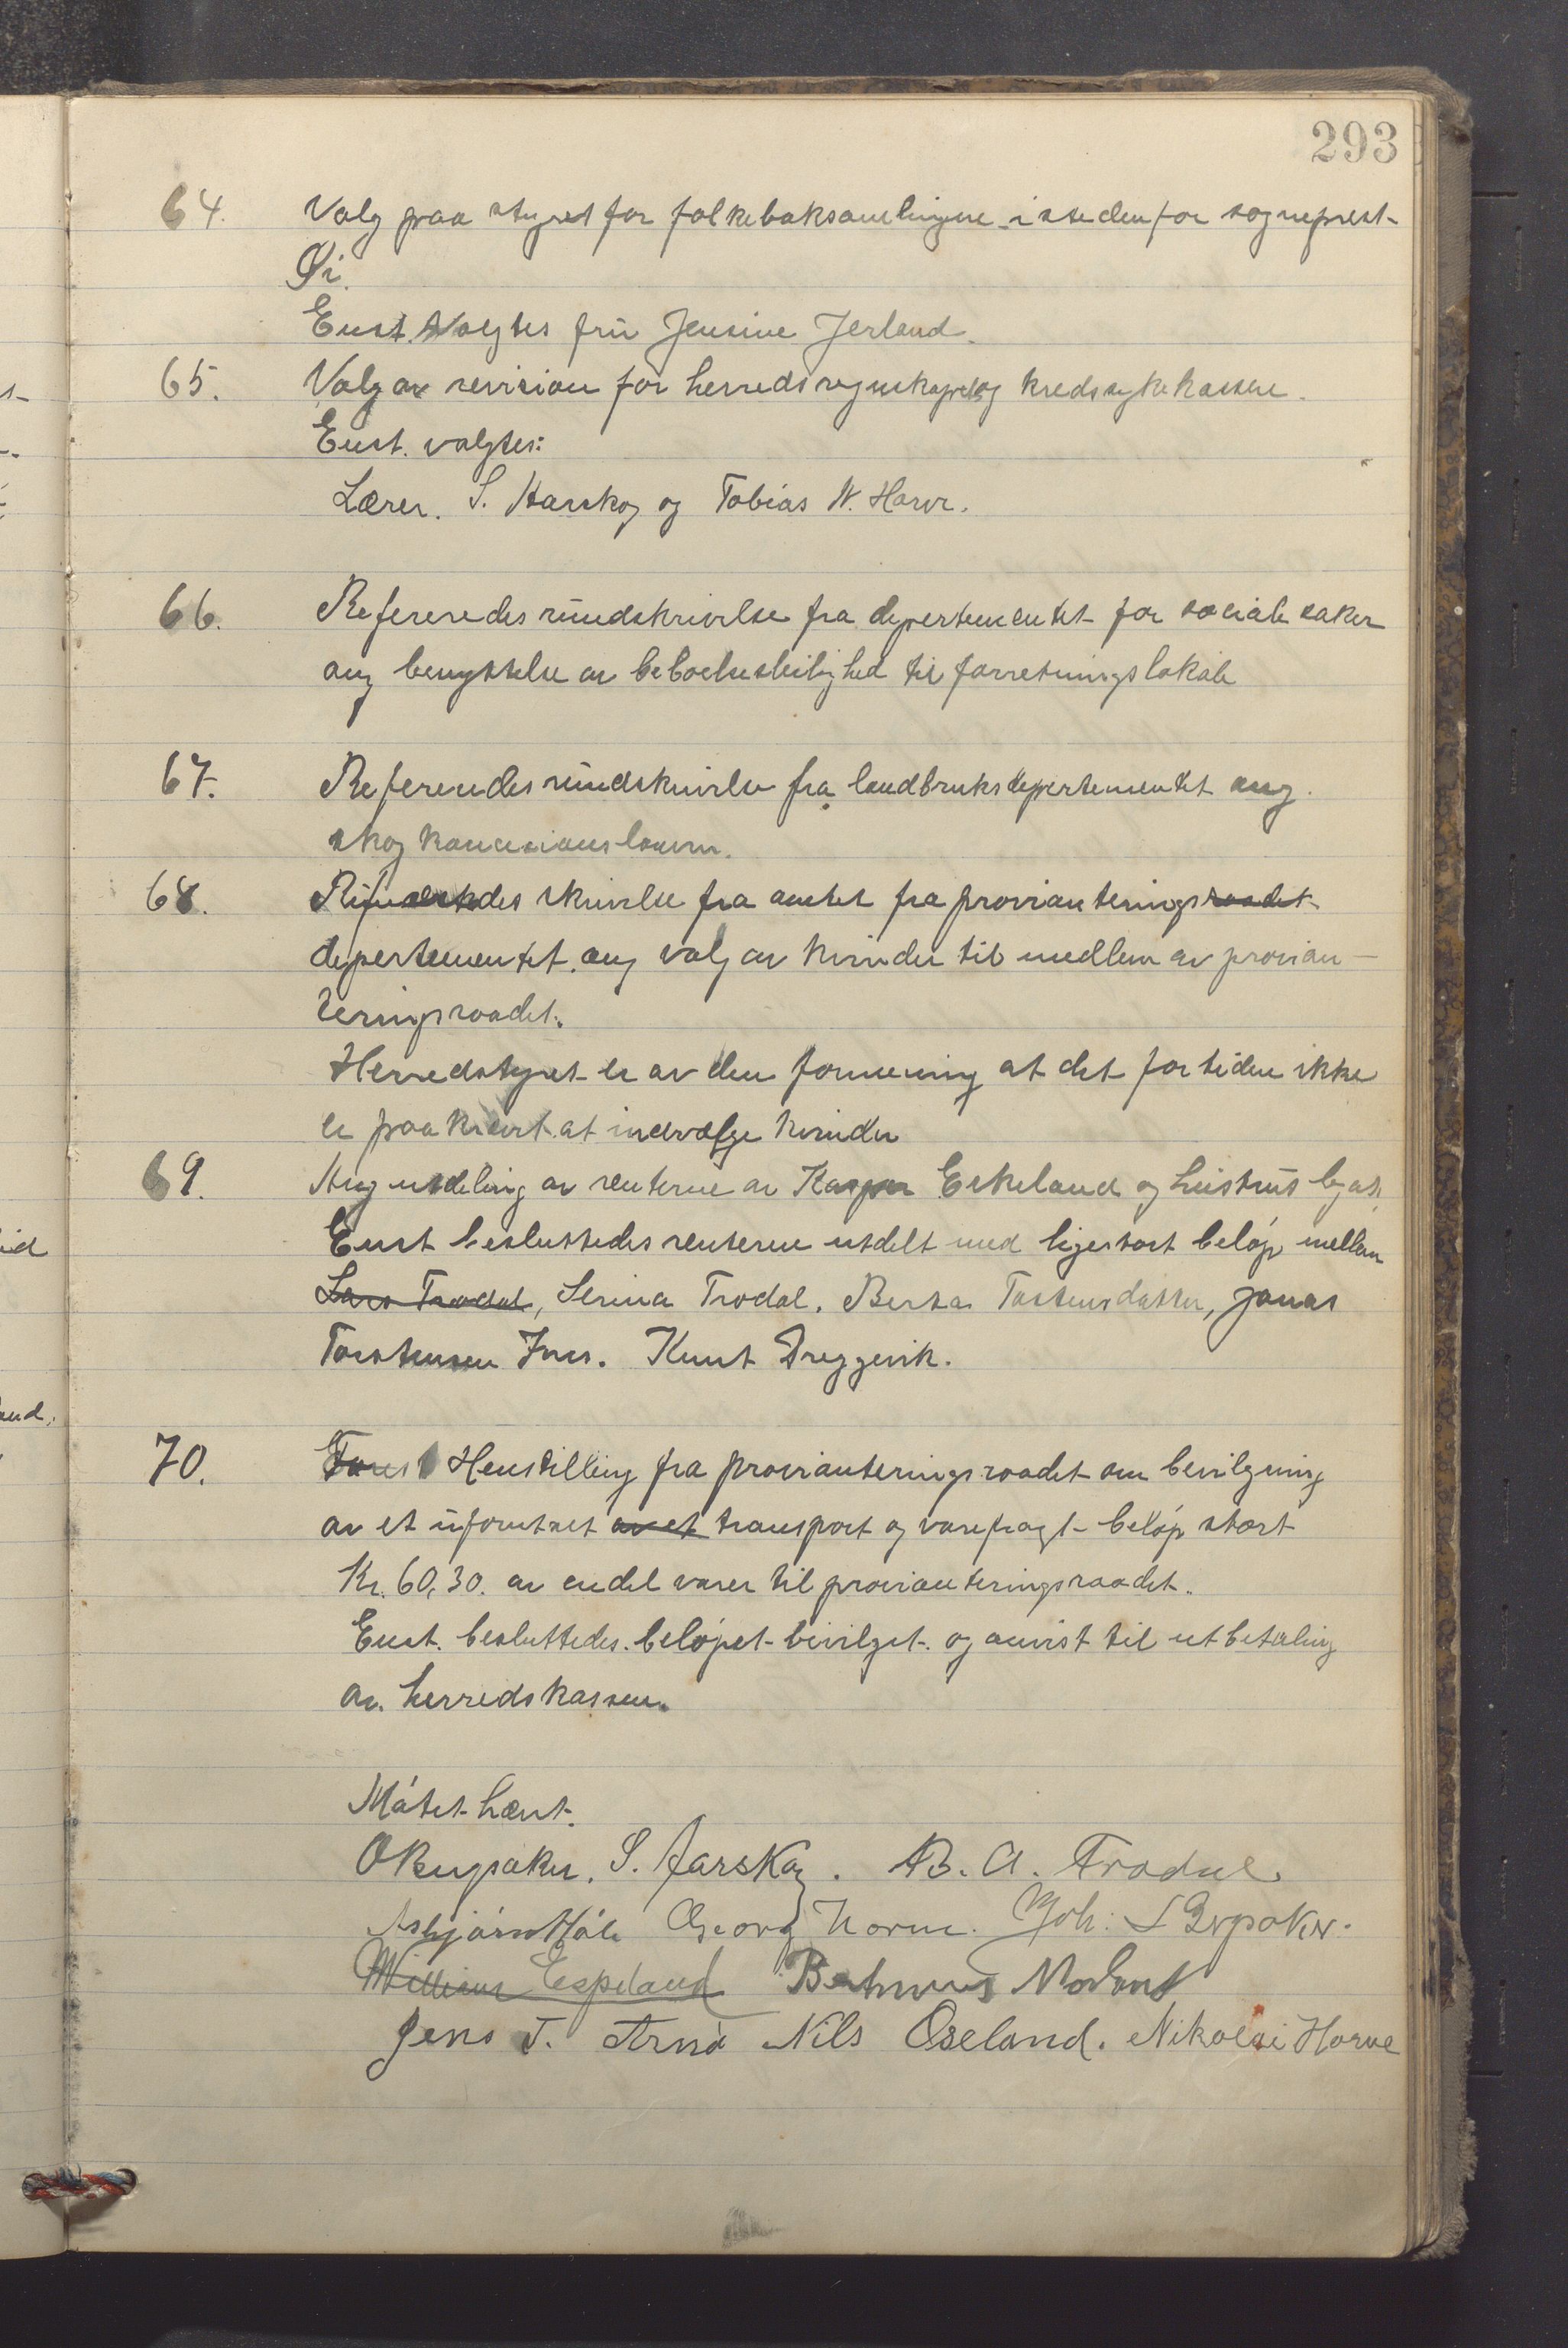 293
64. Valg paa styret for folkeboksamlingene istedenfor sogneprest
Øi.
Enst. Valgtes frü Jensine Jerland.
65. Valg av revision for herredsregnskapet og kredssykekassen.
Enst. valgtes:
Lærer. S. Harskog og Tobias N. Horve.
66. Refereredes ründskrivelse fra depertementet for sociale saker
ang benyttelse av beboelsesleilighed til forretningslokale
67. Refereredes ründskrivelse fra landbruksdepertementet ang.
skogkoncessionsloven.
68. Refereredes skrivelse fra amtet fra provianteringsraadet
depertementet. ang valg av kvinder til medlem av provian-
teringsraadet.
Herredstyret er av den formening at det for tiden ikke
er paakrævet at indvælge kvinder
69. Ang utdeling av renterne av Kasper Eskeland og hüstrüs legat.
Enst besluttedes renterne utdelt med ligestort beløp mellem
Lars Trodal, Serina Trodal. Berta Tostensdatter, Jonas
Torstensen Ims. Knut Dreggevik.
70. Henstilling fra provianteringsraadet om bevilgning
av et üforutset av et transport og varefragt- beløp stort
Kr. 60,30. av endel varer til provianteringsraadet.
Enst. besluttedes. beløpet bevilget. og anvist til utbetaling
av. herredskassen.
Møtet hævt.
O Rugsaker. S. Aarskog. B. A. Trodal.
Asbjørn Høle Georg Horve. Joh: L
William Espeland
Jens T. Arnø Nils Oseland. Nikolai Horve